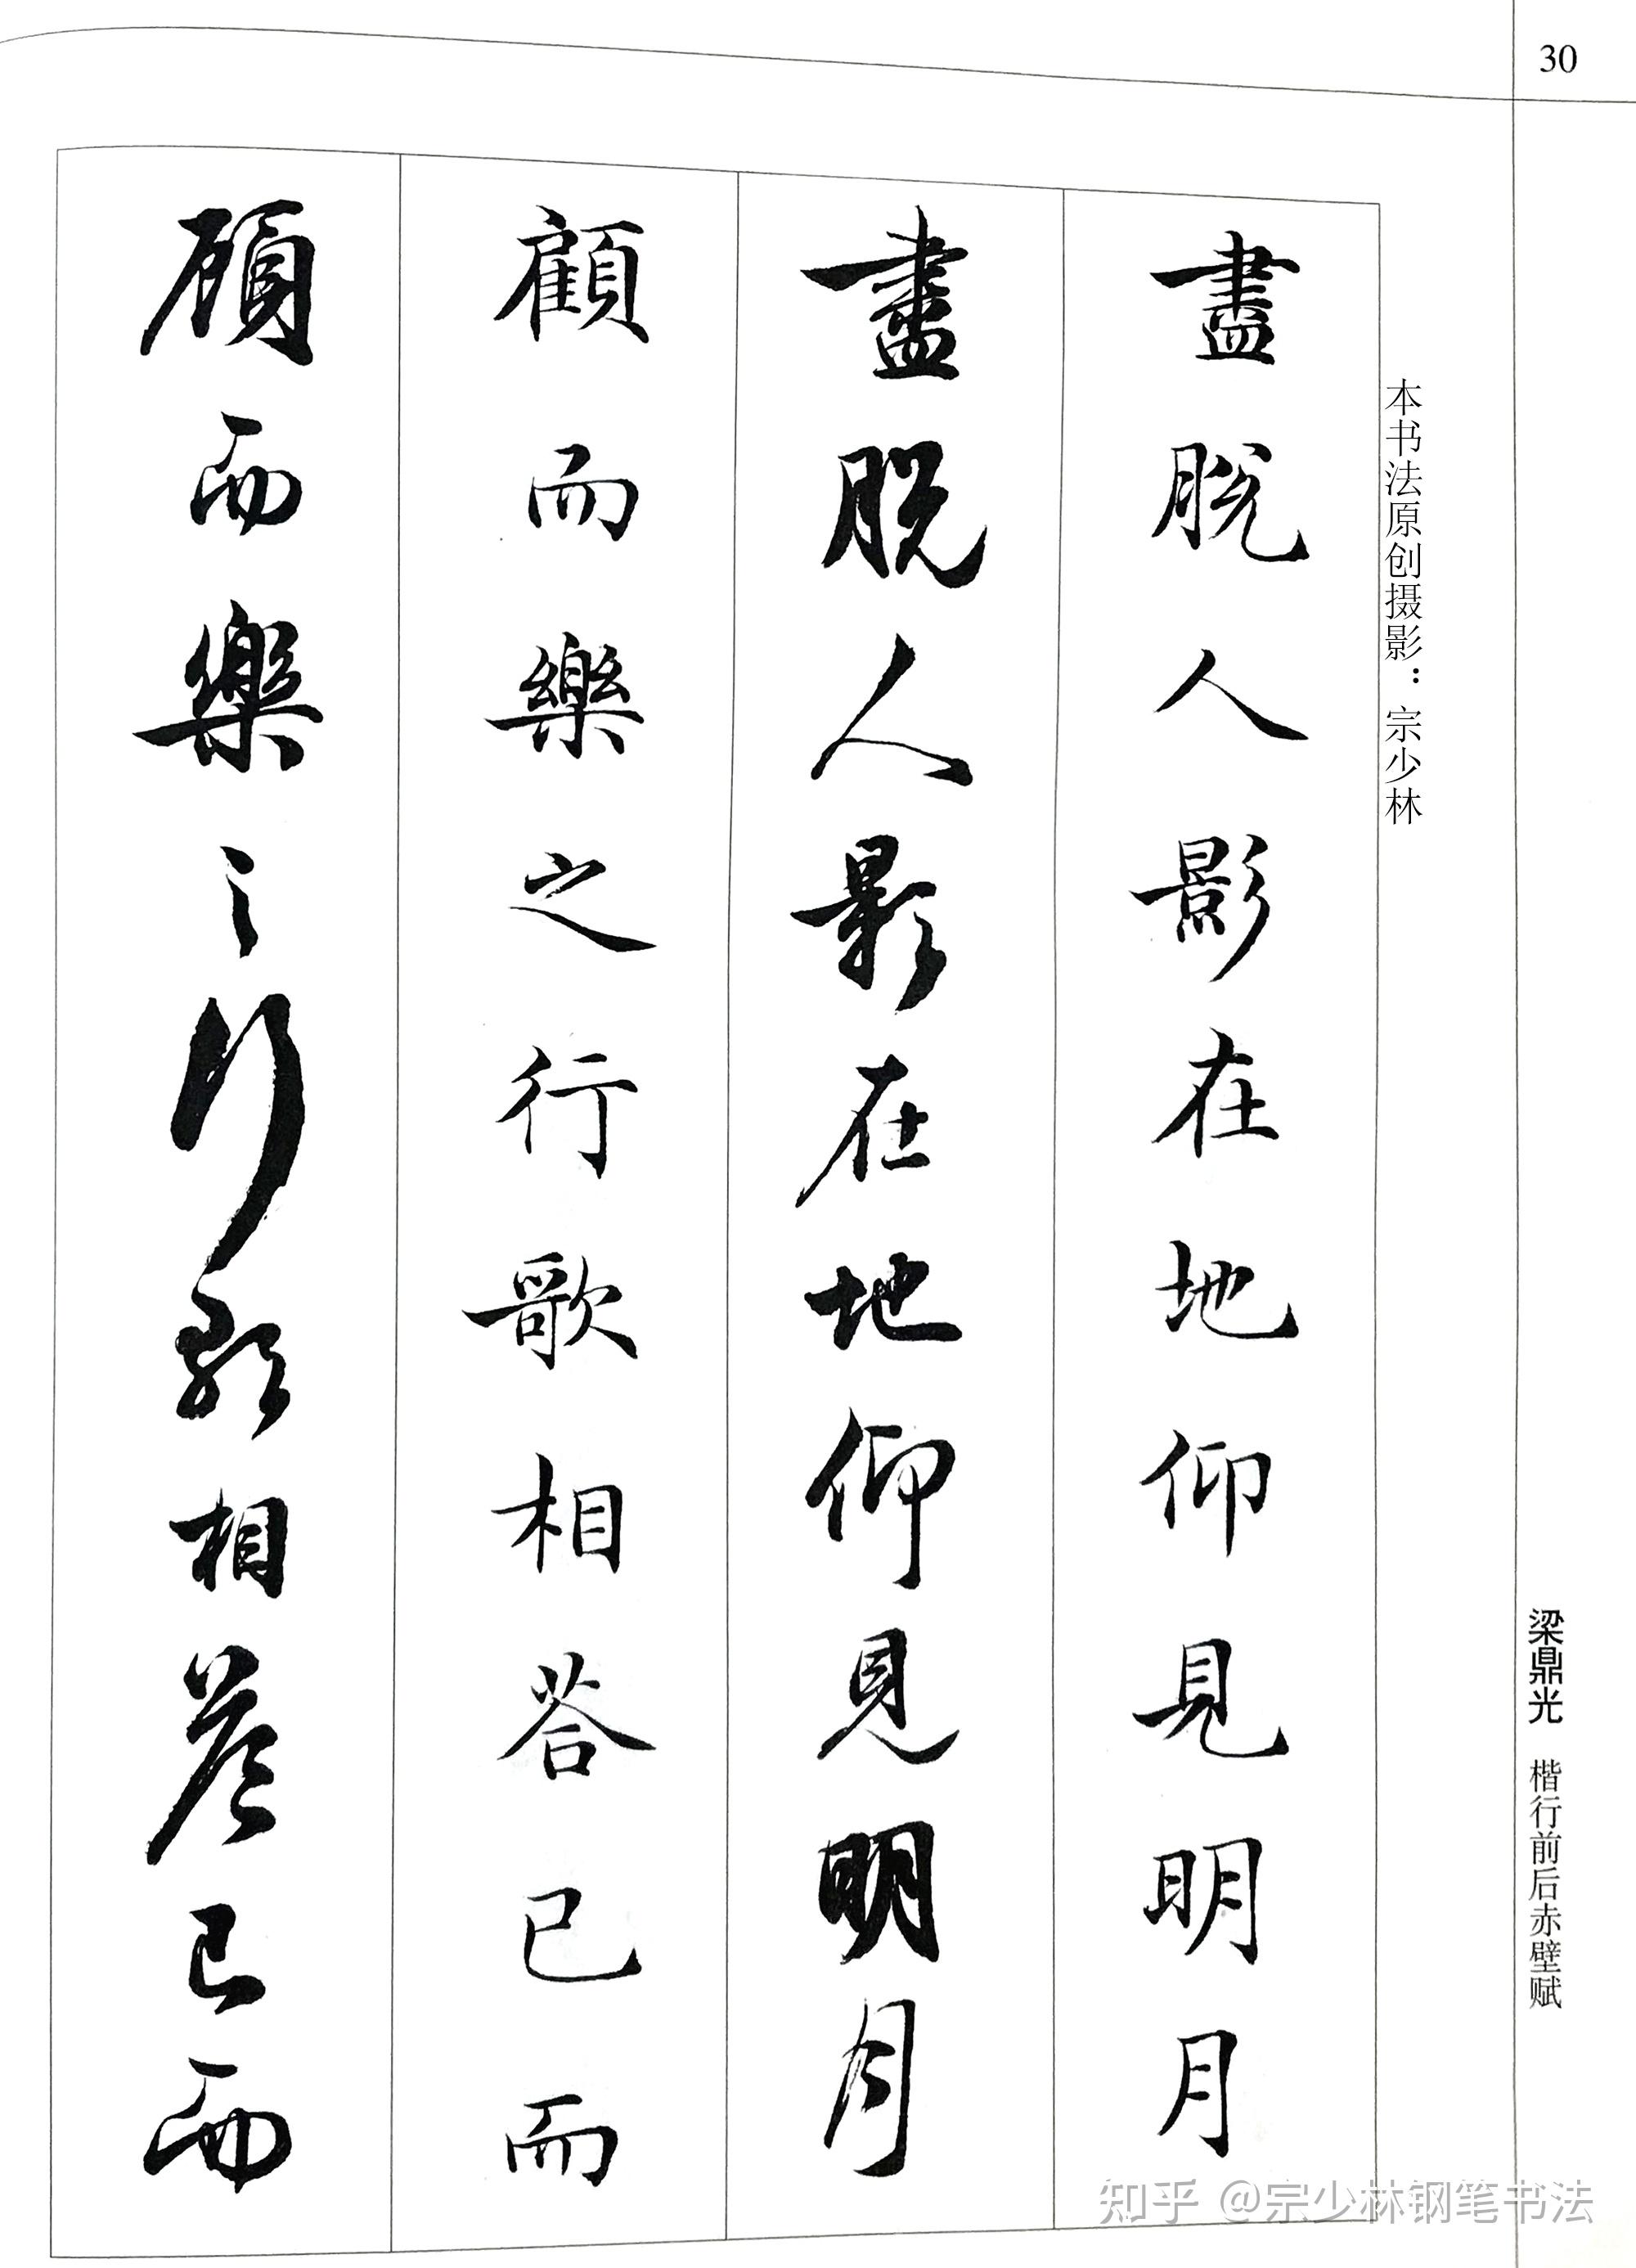 30
本书法原创摄影：宗少林
盡脱人影在地仰見明月
盡脱人影在地仰見明月
顧而樂之行歌相荅已而
顧而樂之行歌相荅已而
梁鼎光 楷行前后赤壁赋
知乎 @宗少林钢笔书法